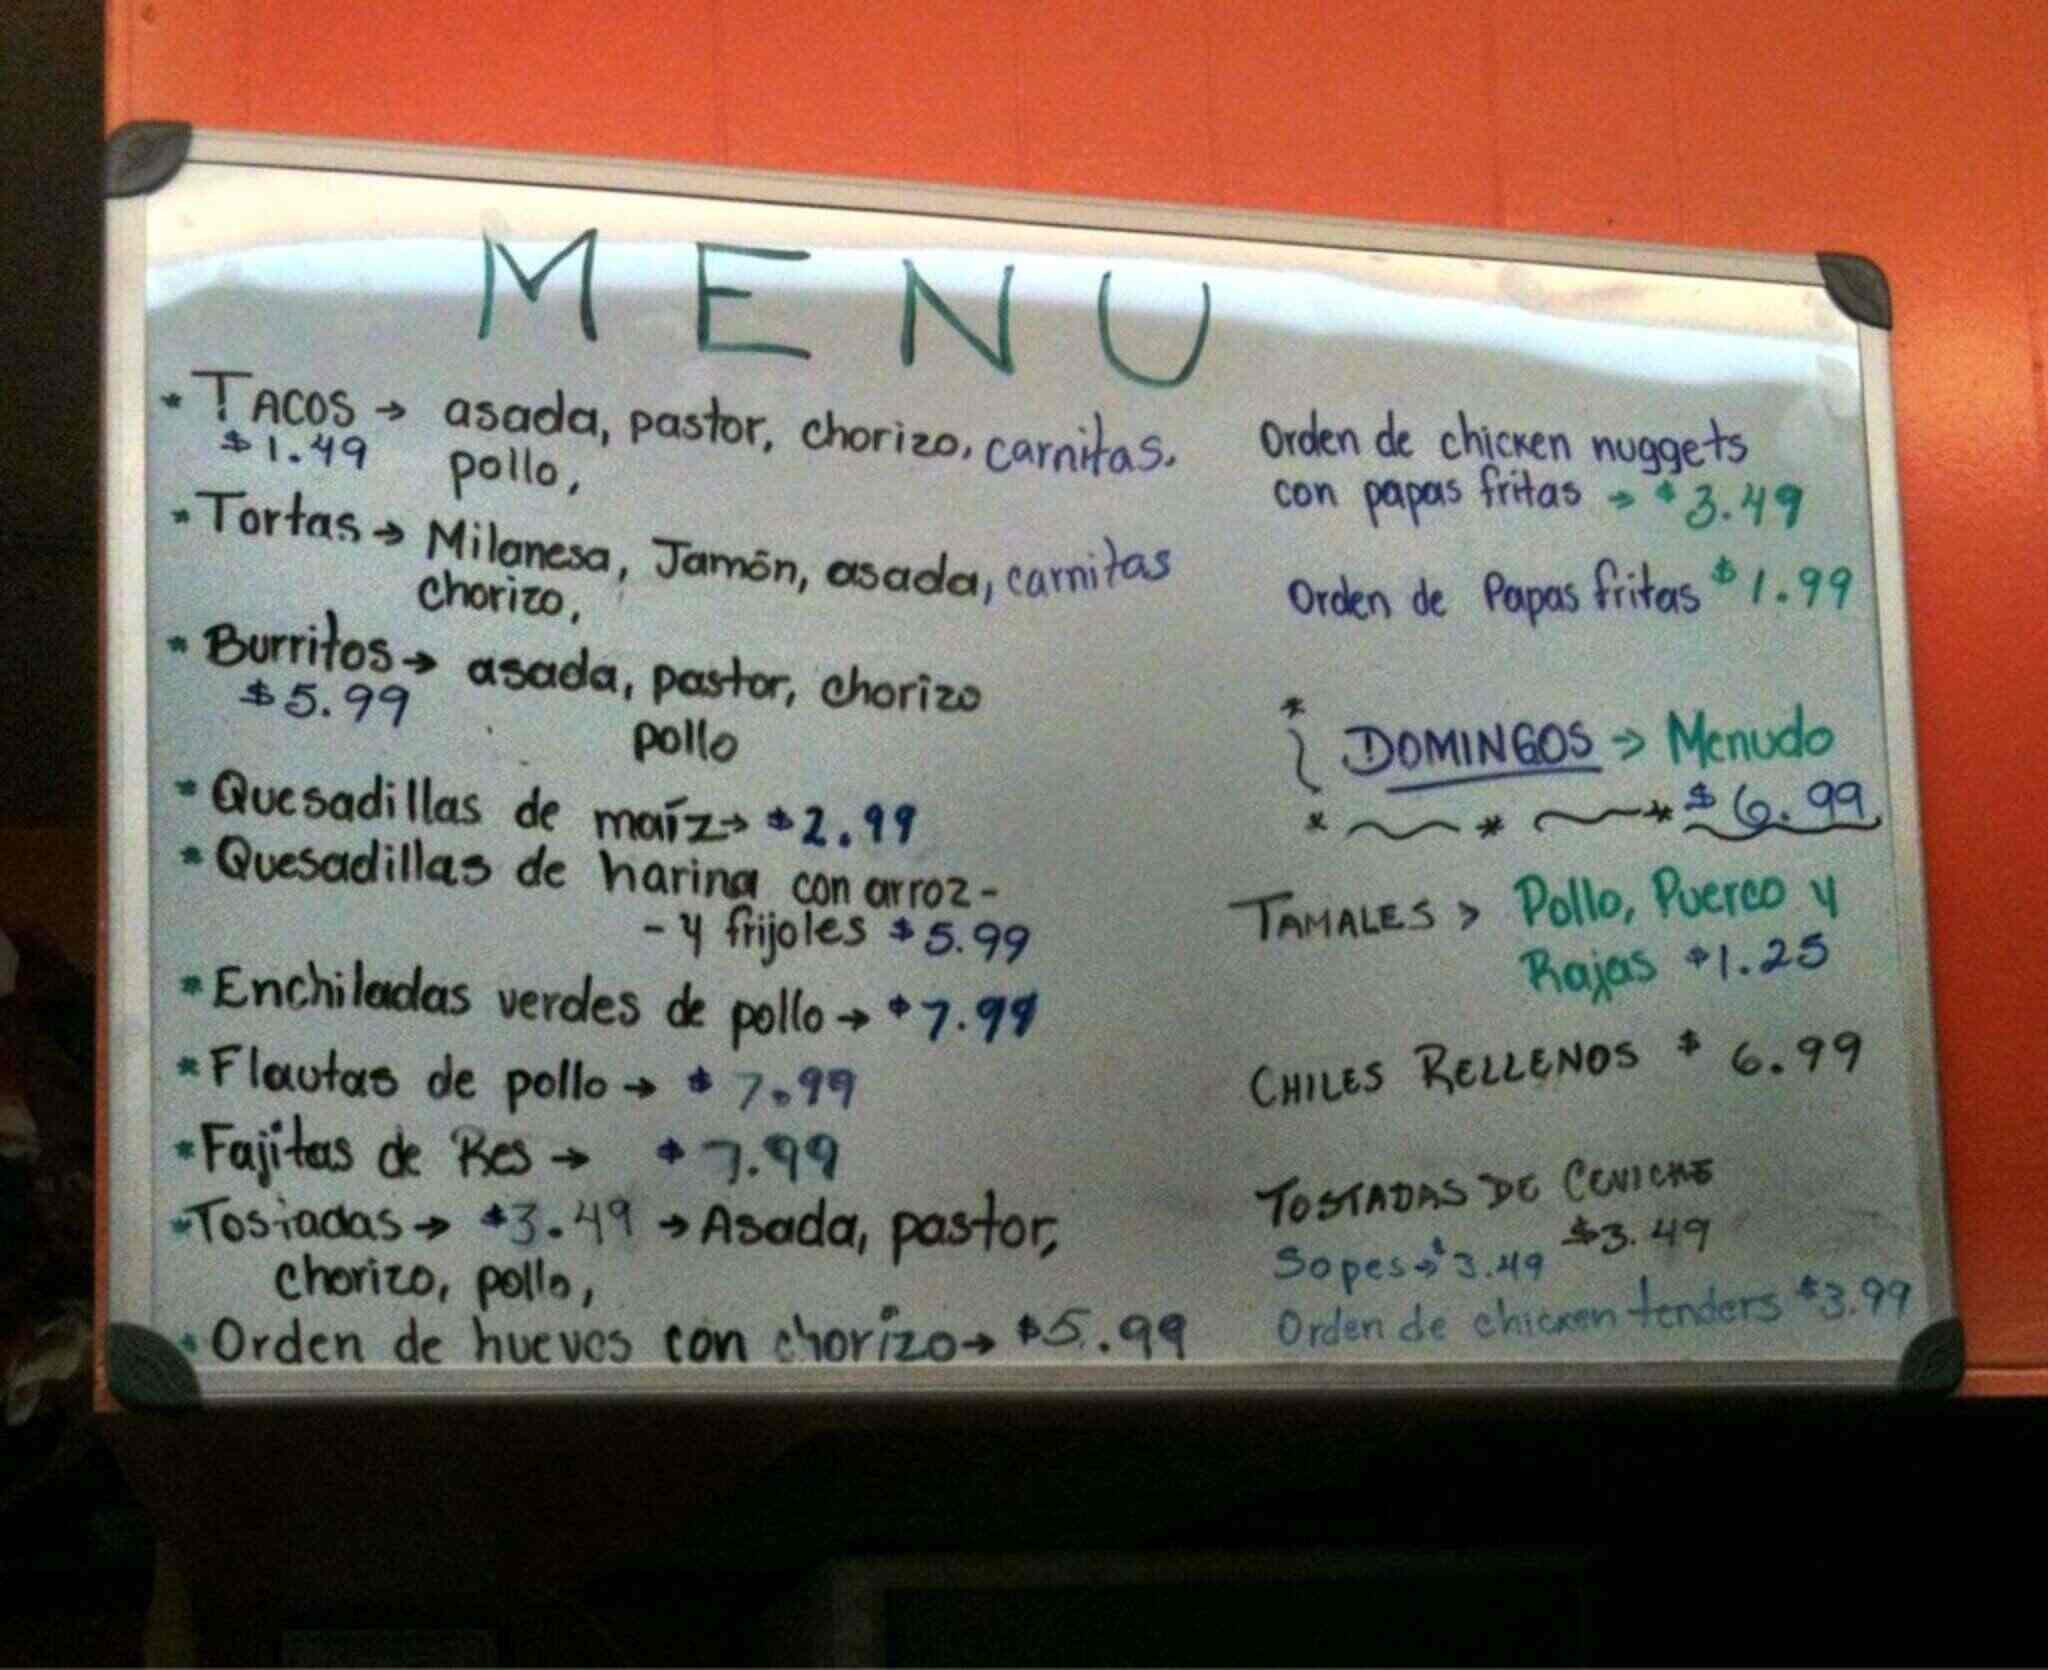 MENU
* TACOS → asada, pastor, chorizo, carnitas.
$1.49 pollo,
* Tortas → Milanesa, Jamón, asada, carnitas
chorizo,
* Burritos → asada, pastor, chorizo
$5.99 pollo
* Quesadillas de maíz → $2.99
* Quesadillas de harina con arroz -
- y frijoles $5.99
* Enchiladas verdes de pollo → $7.99
* Flautas de pollo → $7.99
* Fajitas de Res → $7.99
* Tostadas → $3.49 → Asada, pastor,
chorizo, pollo,
* Orden de huevos con chorizo → $5.99
Orden de chicken nuggets
con papas fritas → $3.49
Orden de Papas fritas $1.99
DOMINGOS → Menudo
$6.99
TAMALES > Pollo, Puerco y
Rajas $1.25
CHILES RELLENOS $6.99
TOSTADAS DE CEVICHE
$3.49
Sopes → $3.49
Orden de chicken tenders $3.99